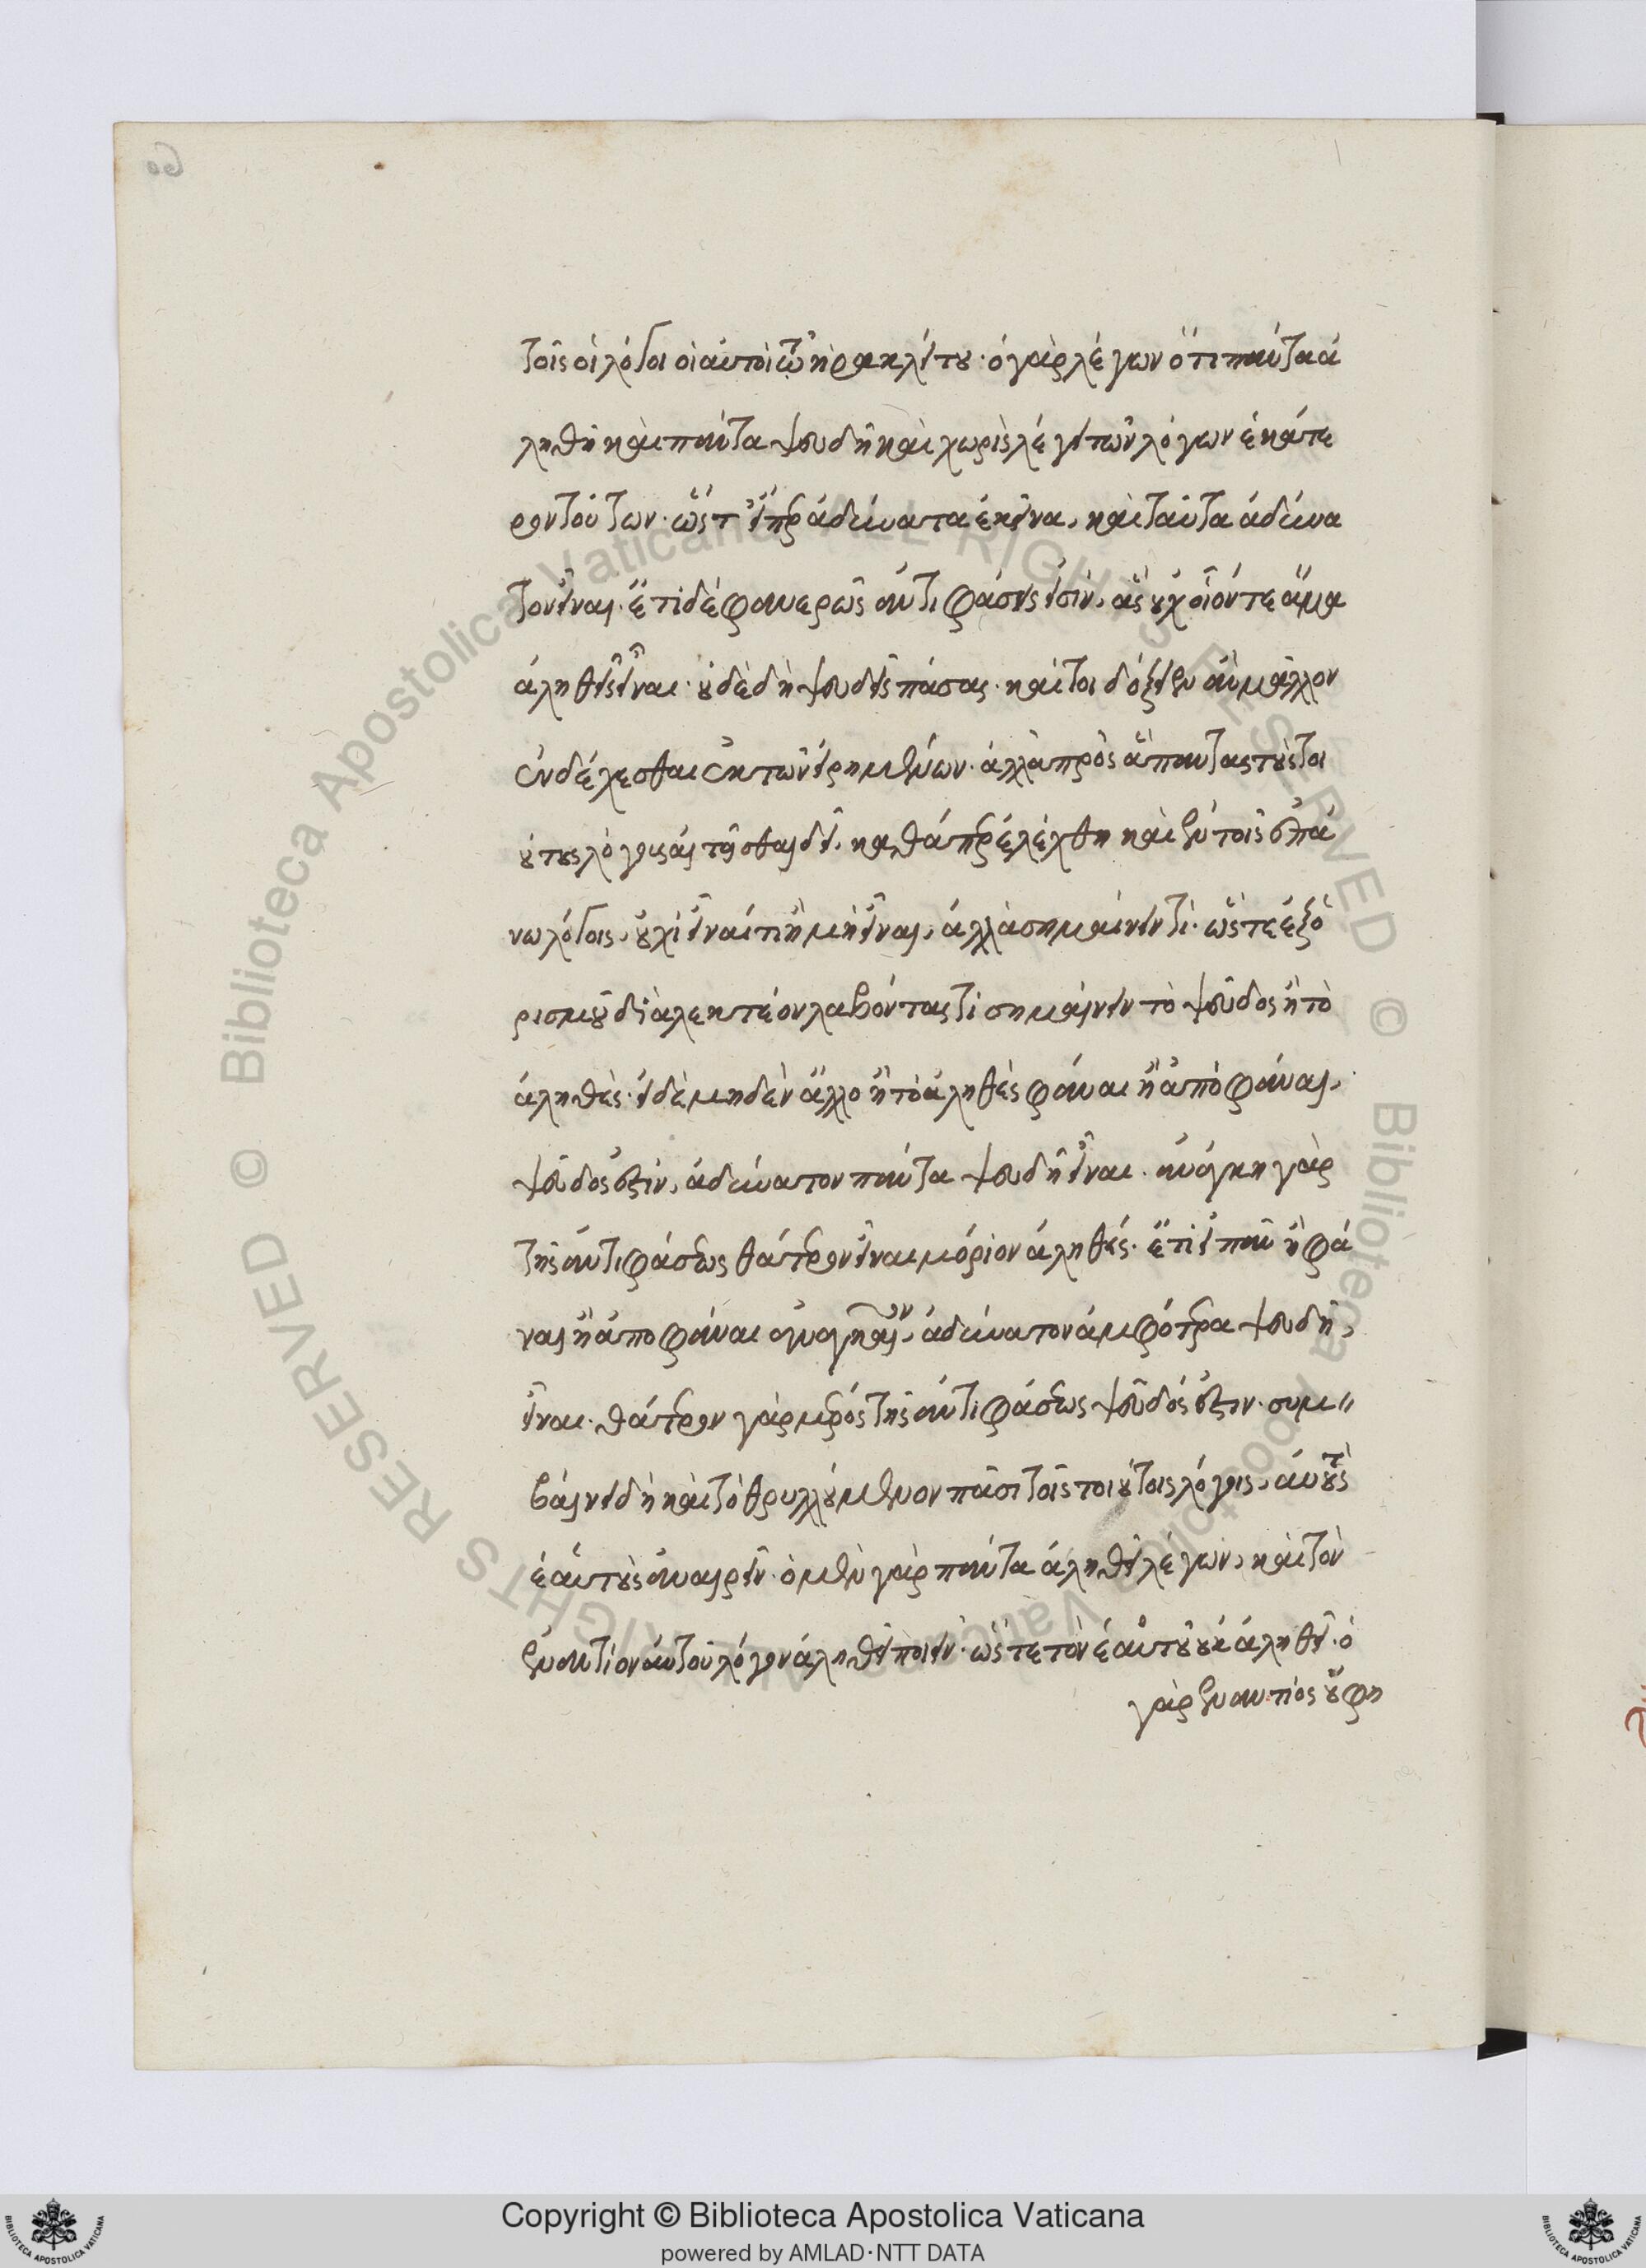 τοῖς οἱ λόγοι οἱ αὐτοὶ τῷ ἡρακλείτου· ὁ γὰρ λέγων ὅτι πάντα ἀ
ληθῆ καὶ πάντα ψευδῆ καὶ χωρὶς λέγει τῶν λόγων ἑκάτε
ρον τούτων· ὥστ' εἴπερ ἀδύνατα ἐκεῖνα, καὶ ταῦτα ἀδύνα
τον εἶναι. ἔτι δὲ φανερῶς ἀντιφάσεις εἰσὶν, ἃς οὐχ οἷόν τε ἅμα
ἀληθεῖς εἶναι· οὐδὲ δὴ ψευδεῖς πάσας· καίτοι δόξειεν ἂν μᾶλλον
ἐνδέχεσθαι ἐκ τῶν εἰρημένων· ἀλλὰ πρὸς ἅπαντας τοὺς τοι
ούτους λόγους αἰτεῖσθαι δεῖ, καθάπερ ἐλέχθη καὶ ἐν τοῖς ἐπά
νω λόγοις, οὐχὶ εἶναί τι ἢ μὴ εἶναι, ἀλλὰ σημαίνειν τί· ὥστε ἐξ ὁ
ρισμοῦ διαλεκτέον λαβόντας τί σημαίνειν τὸ ψεῦδος ἢ τὸ
ἀληθὲς· εἰ δὲ μηδὲν ἄλλο ἢ τὸ ἀληθὲς φάναι ἢ ἀποφάναι,
ψεῦδος ἐστὶν, ἀδύνατον πάντα ψευδῆ εἶναι· ἀνάγκη γὰρ
τῆς ἀντιφάσεως θάτερον εἶναι μόριον ἀληθές· ἔτι εἰ πᾶν ἢ φά
ναι ἢ ἀποφάναι ἀναγκαῖον, ἀδύνατον ἀμφότερα ψευδῆ,
εἶναι· θάτερον γὰρ μέρος τῆς ἀντιφάσεως ψεῦδός ἐστιν· συμ〃
βαίνει δὴ καὶ τὸ θρυλλούμενον πᾶσι τοῖς τοιούτοις λόγοις, αὐτοὺς
ἑαυτοὺς ἀναιρεῖν· ὁ μὲν γὰρ πάντα ἀληθῆ λέγων, καὶ τὸν
ἐναντίον αὐτοῦ λόγον ἀληθῆ ποιεῖ· ὥστε τὸν ἑαυτοῦ οὐκ ἀληθῆ· ὁ
γὰρ ἐναντίος οὔ φη